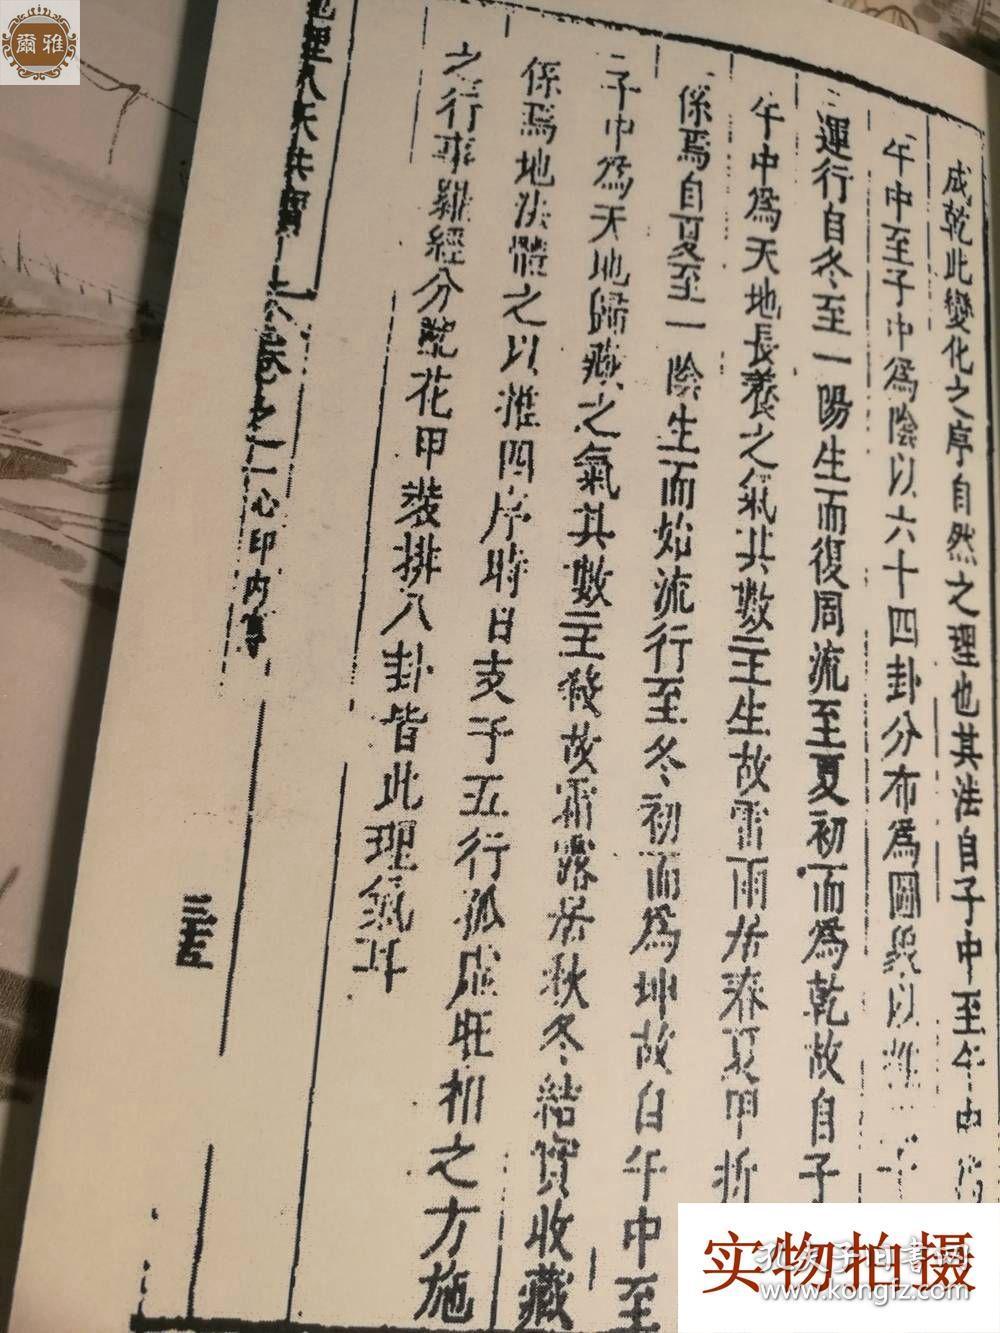 成乾此變化之序自然之理也其法自子中至午中
午中至子中為陰以六十四卦分布為圖
運行自冬至一陽生而復周流至夏初而為乾故自子
午中為天地長養之氣其數主生故雷雨居春夏甲拆
係焉自夏至一陰生而始流行至冬初而為坤故自午中至
子中為天地歸藏之氣其數主殺故霜露居秋冬結實收藏
係焉地法體之以推四序時日支干五行孤虛旺相之方施
之行事羅經分號花甲裝排八卦皆此理氣耳
地理人天共寶
卷之一心印内篇
三五
爾雅
实物拍摄
孔夫子旧书网
www.kongfz.com